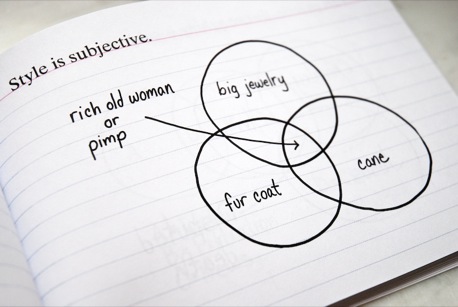 Style is subjective.
rich old woman
or
pimp
big jewelry
fur coat
cane